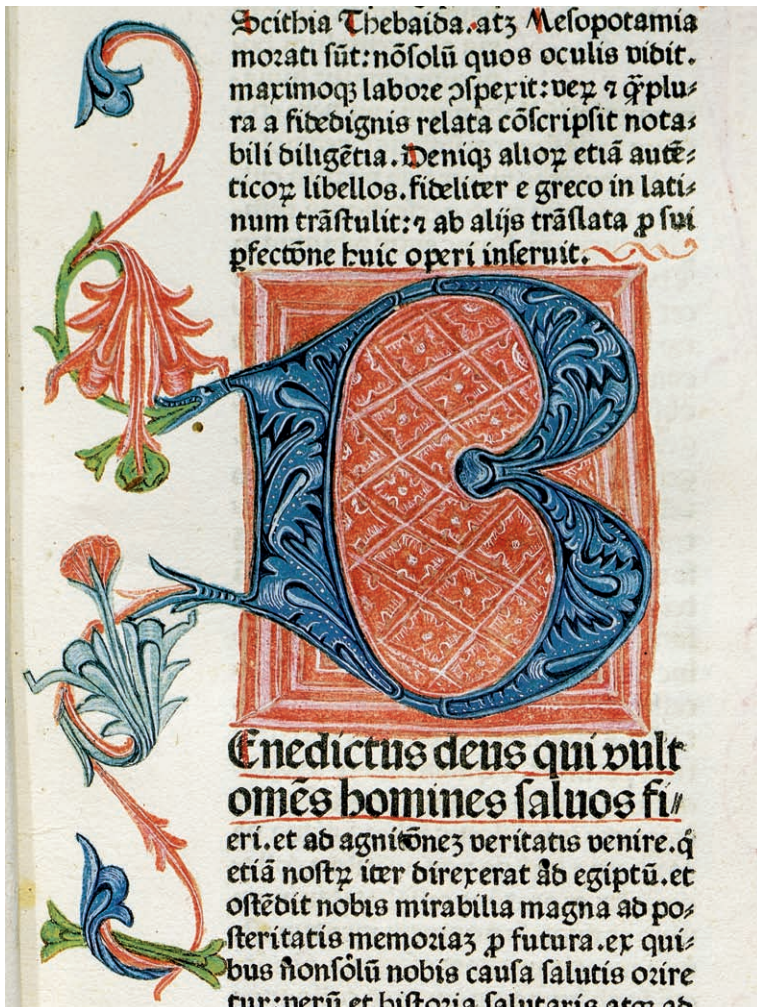 Scithia Thebaida. atqꝫ Mesopotamia
morati sūt: nōsolū quos oculis vidit.
maximoqꝫ labore ↄspexit: veꝝ ⁊ q̄ꝫplu⸗
ra a fidedignis relata cōscripsit nota⸗
bili diligētia. Deniqꝫ alioꝝ etiā autē⸗
ticoꝝ libellos. fideliter e greco in lati⸗
num trāstulit: ⁊ ab alijs trāslata ꝓ sui
ꝑfectōne huic operi inseruit.
B
Enedictus deus qui vult
omēs homines saluos fi⸗
eri. et ad agnitōneꝫ veritatis venire. q̇
etiā nostꝝ iter direxerat ad egiptū. et
ostēdit nobis mirabilia magna ad po⸗
steritatis memoriaꝫ ꝓ futura. ex qui⸗
bus nonsolū nobis causa salutis orire
tur: verū et historia salutaris